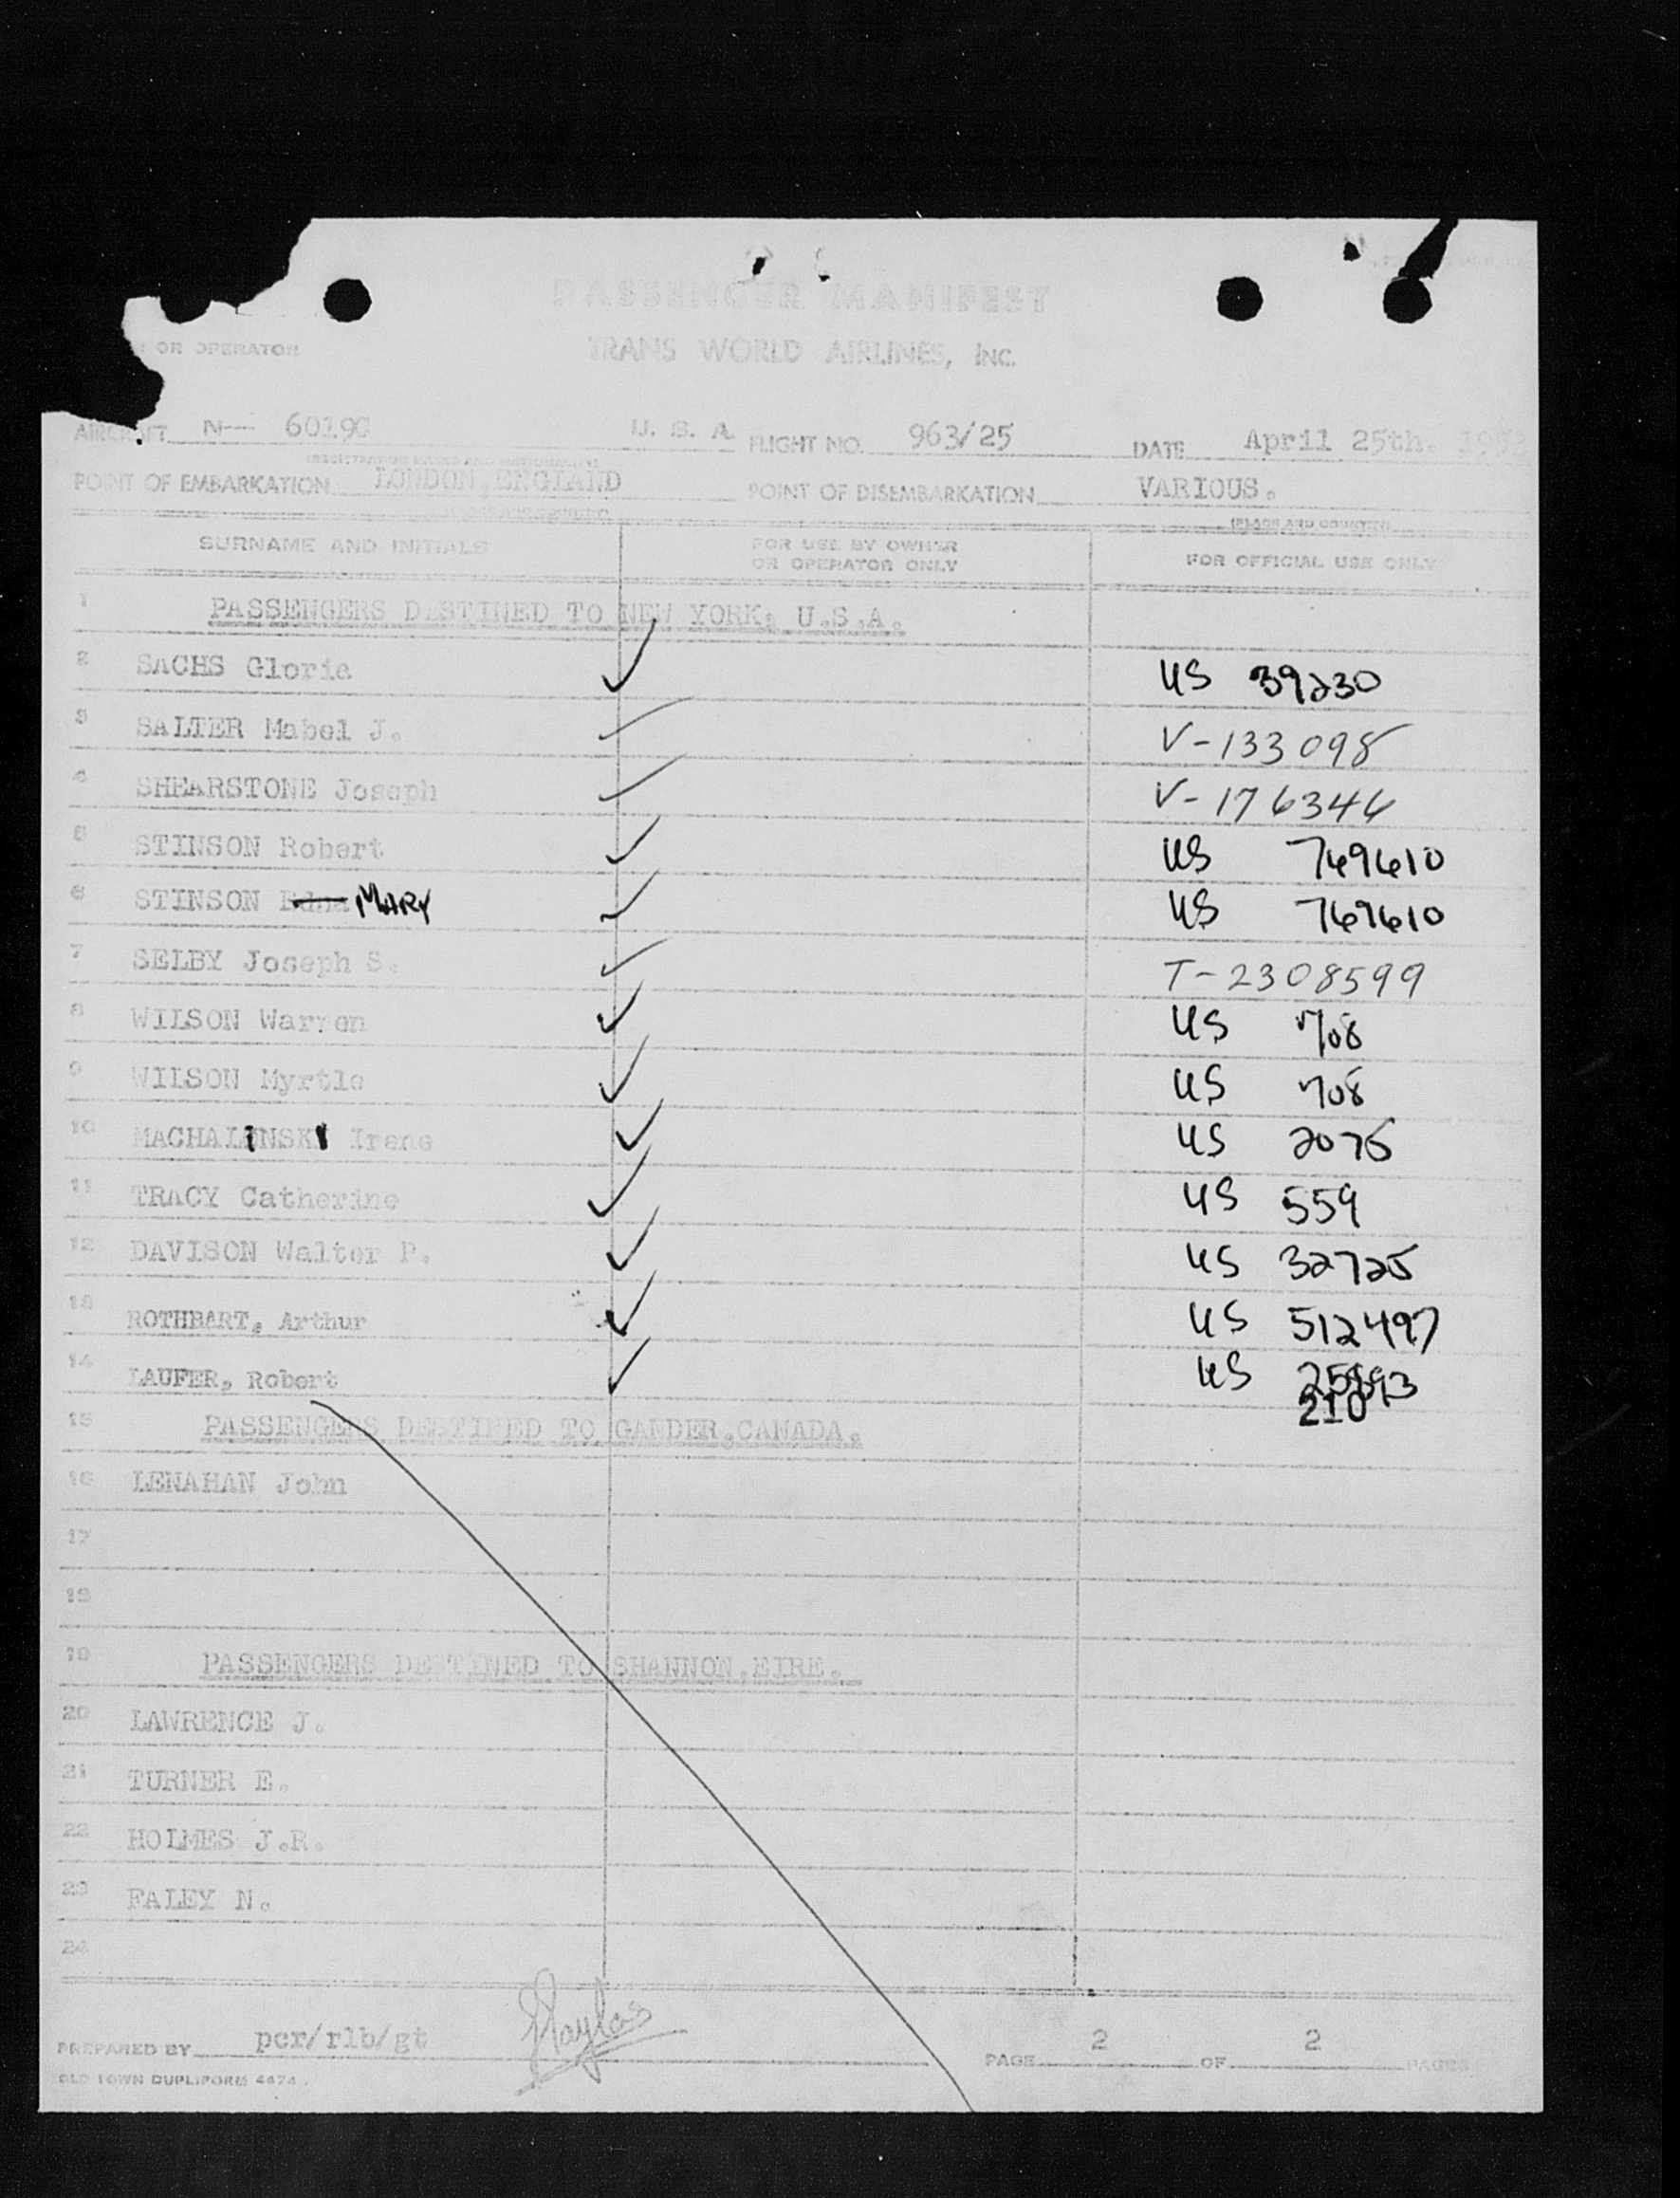 PASSENGER MANIFEST
OR OPERATOR TRANS WORLD AIRLINES, INC.
AIRCRAFT N- 6019C U. S. A. FLIGHT NO. 963/25 DATE April 25th.
POINT OF EMBARKATION LONDON, ENGLAND POINT OF DISEMBARKATION VARIOUS.
(PLACE AND COUNTRY)
SURNAME AND INITIALS FOR USE BY OWNER OR OPERATOR ONLY FOR OFFICIAL USE ONLY
1 PASSENGERS DESTINED TO NEW YORK, U.S.A.
2 SACHS Gloria ✓ US 39230
3 SALTER Mabel J. ✓ V-133098
4 SHEARSTONE Joseph ✓ V-176346
5 STINSON Robert ✓ US 769610
6 STINSON Edna MARY ✓ US 769610
7 SELBY Joseph S. ✓ T-2308599
8 WILSON Warren ✓ US 708
9 WILSON Myrtle ✓ US 708
10 MACHALINSKI Irene ✓ US 2075
11 TRACY Catherine ✓ US 559
12 DAVISON Walter P. ✓ US 32725
13 ROTHBART, Arthur ✓ US 512497
14 LAUFER, Robert ✓ US
210
15 PASSENGERS DESTINED TO GANDER, CANADA.
16 LENAHAN John
17
18
19 PASSENGERS DESTINED TO SHANNON, EIRE.
20 LAWRENCE J.
21 TURNER E.
22 HOLMES J.R.
23 FALEY N.
24
PREPARED BY pcr/rlb/gt PAGE 2 OF 2 PAGES
OLD TOWN DUPLIFORM 4474